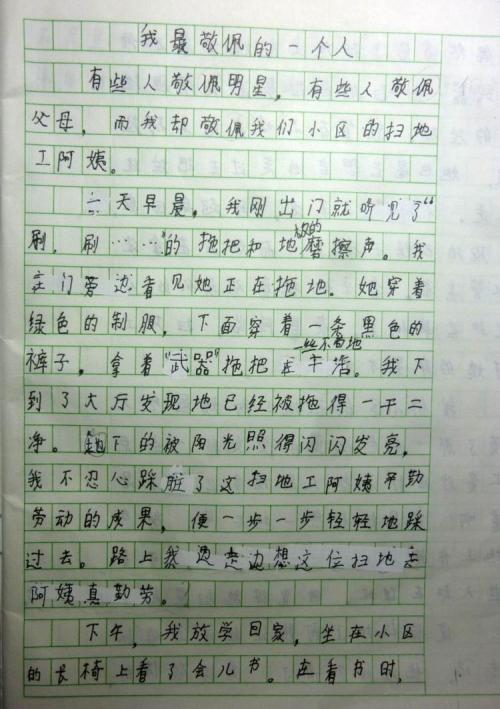 我最敬佩的一个人
有些人敬佩明星，有些人敬佩
父母，而我却敬佩我们小区的扫地
工阿姨。
一天早晨，我刚出门就听见了“
刷，刷……”的拖把和地板的磨擦声。我
在门旁边看见她正在拖地。她穿着
绿色的制服，下面穿着一条黑色的
裤子，拿着“武器”拖把一丝不苟地在干活。我下
到了大厅发现地已经被拖得一干二
净。地下的被阳光照得闪闪发亮，
我不忍心踩脏了这扫地工阿姨辛勤
劳动的成果，便一步一步轻轻地踩
过去。路上我边走边想这位扫地工
阿姨真勤劳。
下午，我放学回家，坐在小区
的长椅上看了会儿书。在看书时，